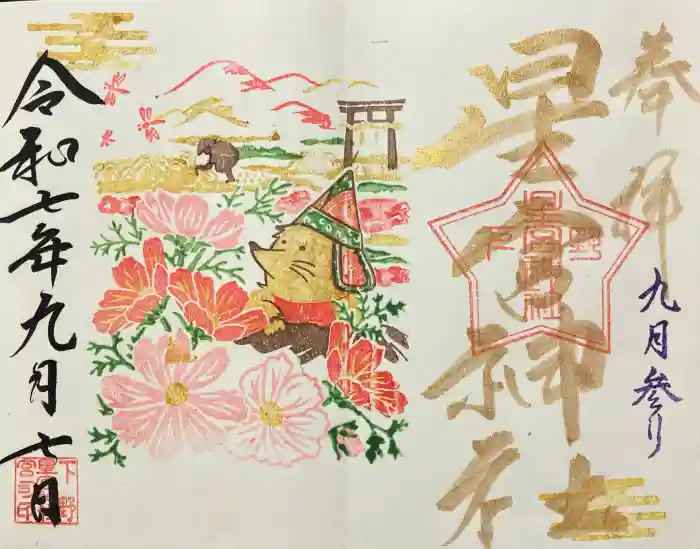 奉拝
九月参り
星宮神社
下野
星宮神社
令和七年九月七日
下野
星宮